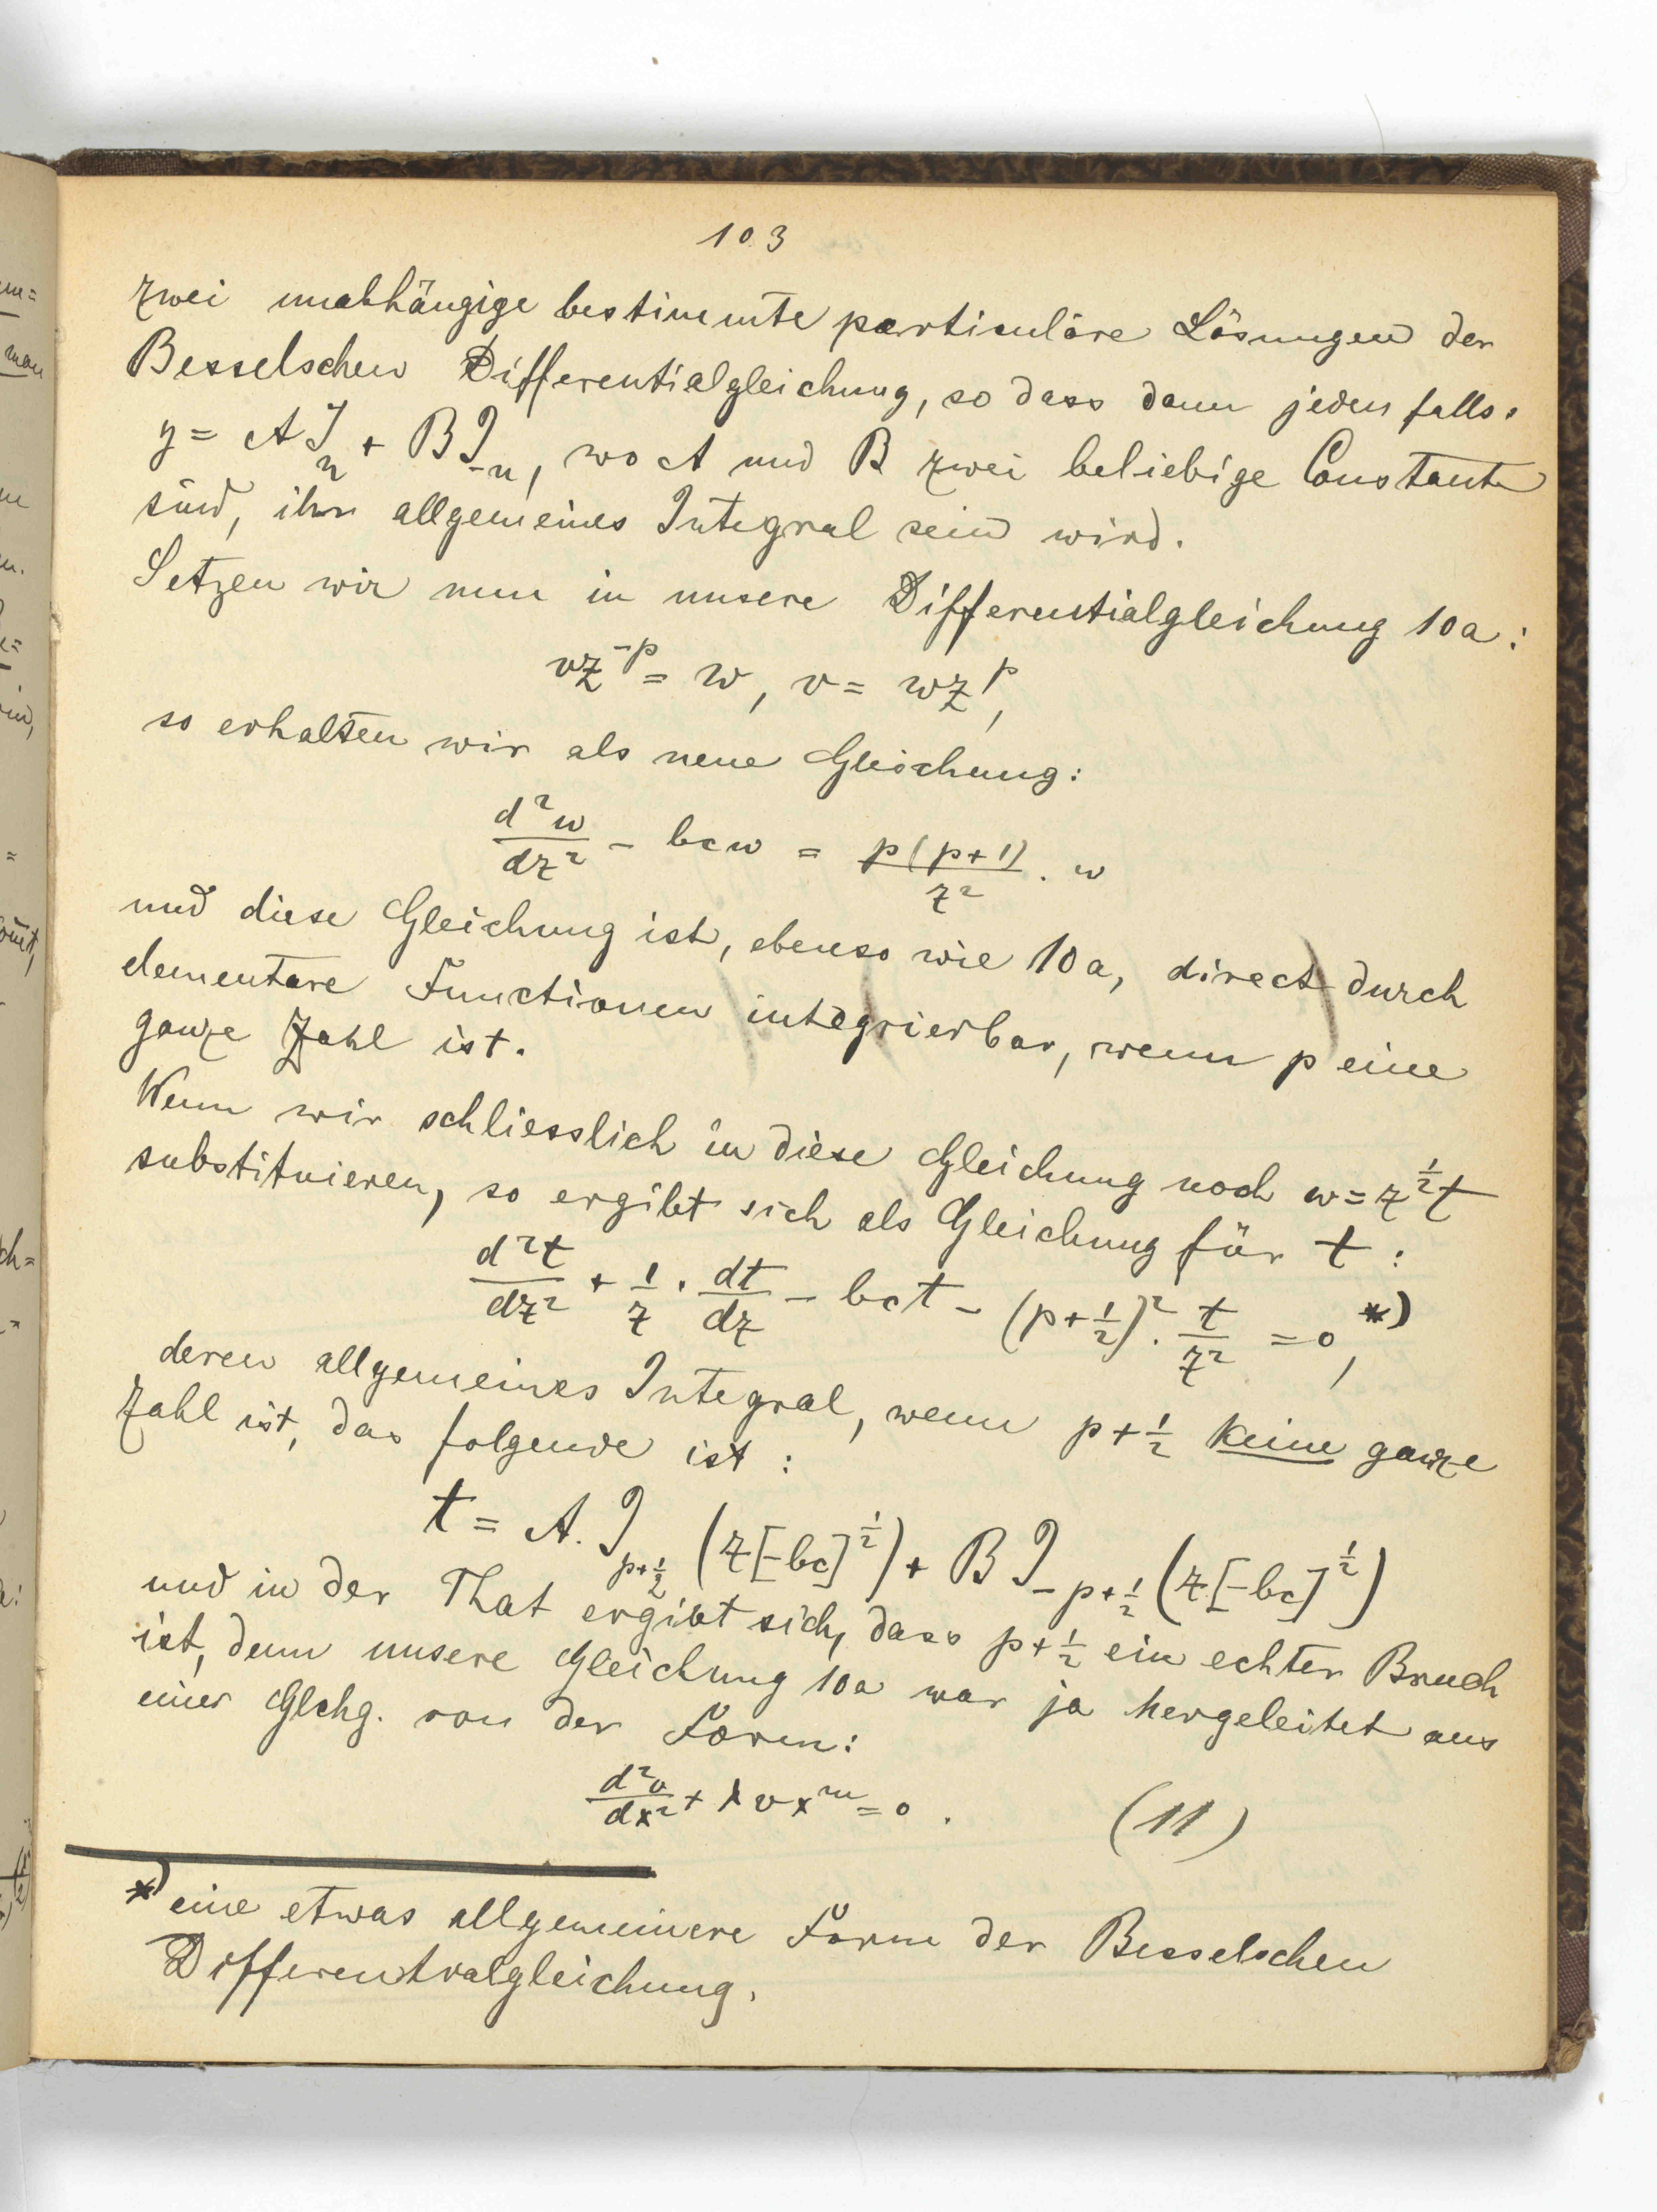 103
zwei unabhängige bestimmte particuläre Lösungen der
Besselschen Differentialgleichung, so dass dann jedenfalls.
y = AJ_n + BJ_{-n}, wo A und B zwei beliebige Constante
sind, ihr allgemeines Integral sein wird.
Setzen wir nun in unsere Differentialgleichung 10a:
vz^{-p} = w, v = wz^p,
so erhalten wir als neue Gleichung:
\frac{d^2w}{dz^2} - bcw = \frac{p(p+1)}{z^2} . w
und diese Gleichung ist, ebenso wie 10a, direct durch
elementare Functionen integrierbar, wenn p eine
ganze Zahl ist.
Wenn wir schliesslich in diese Gleichung noch w = z^{\frac{1}{2}}t
substituieren, so ergibt sich als Gleichung für t:
\frac{d^2t}{dz^2} + \frac{1}{z} . \frac{dt}{dz} - bct - (p+\frac{1}{2})^2 . \frac{t}{z^2} = 0, *)
deren allgemeines Integral, wenn p+\frac{1}{2} keine ganze
Zahl ist, das folgende ist:
t = A. J_{p+\frac{1}{2}} (z[-bc]^{\frac{1}{2}}) + B J_{-p+\frac{1}{2}} (z[-bc]^{\frac{1}{2}})
und in der That ergibt sich, dass p+\frac{1}{2} ein echter Bruch
ist, denn unsere Gleichung 10a war ja hergeleitet aus
einer Glchg. von der Form:
\frac{d^2v}{dx^2} + λvx^m = 0 . (11)
*) eine etwas allgemeinere Form der Besselschen
Differentialgleichung.